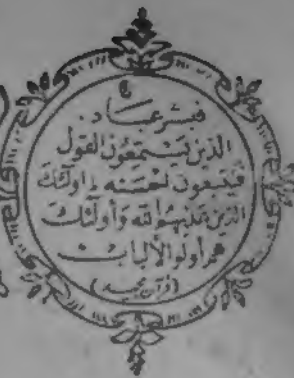 فبشر عباد
الذين يستمعون القول
فيتبعون احسنه اولئك
الذين هديهم الله وأولئك
هم أولو الألباب
(قرآن مجيد)